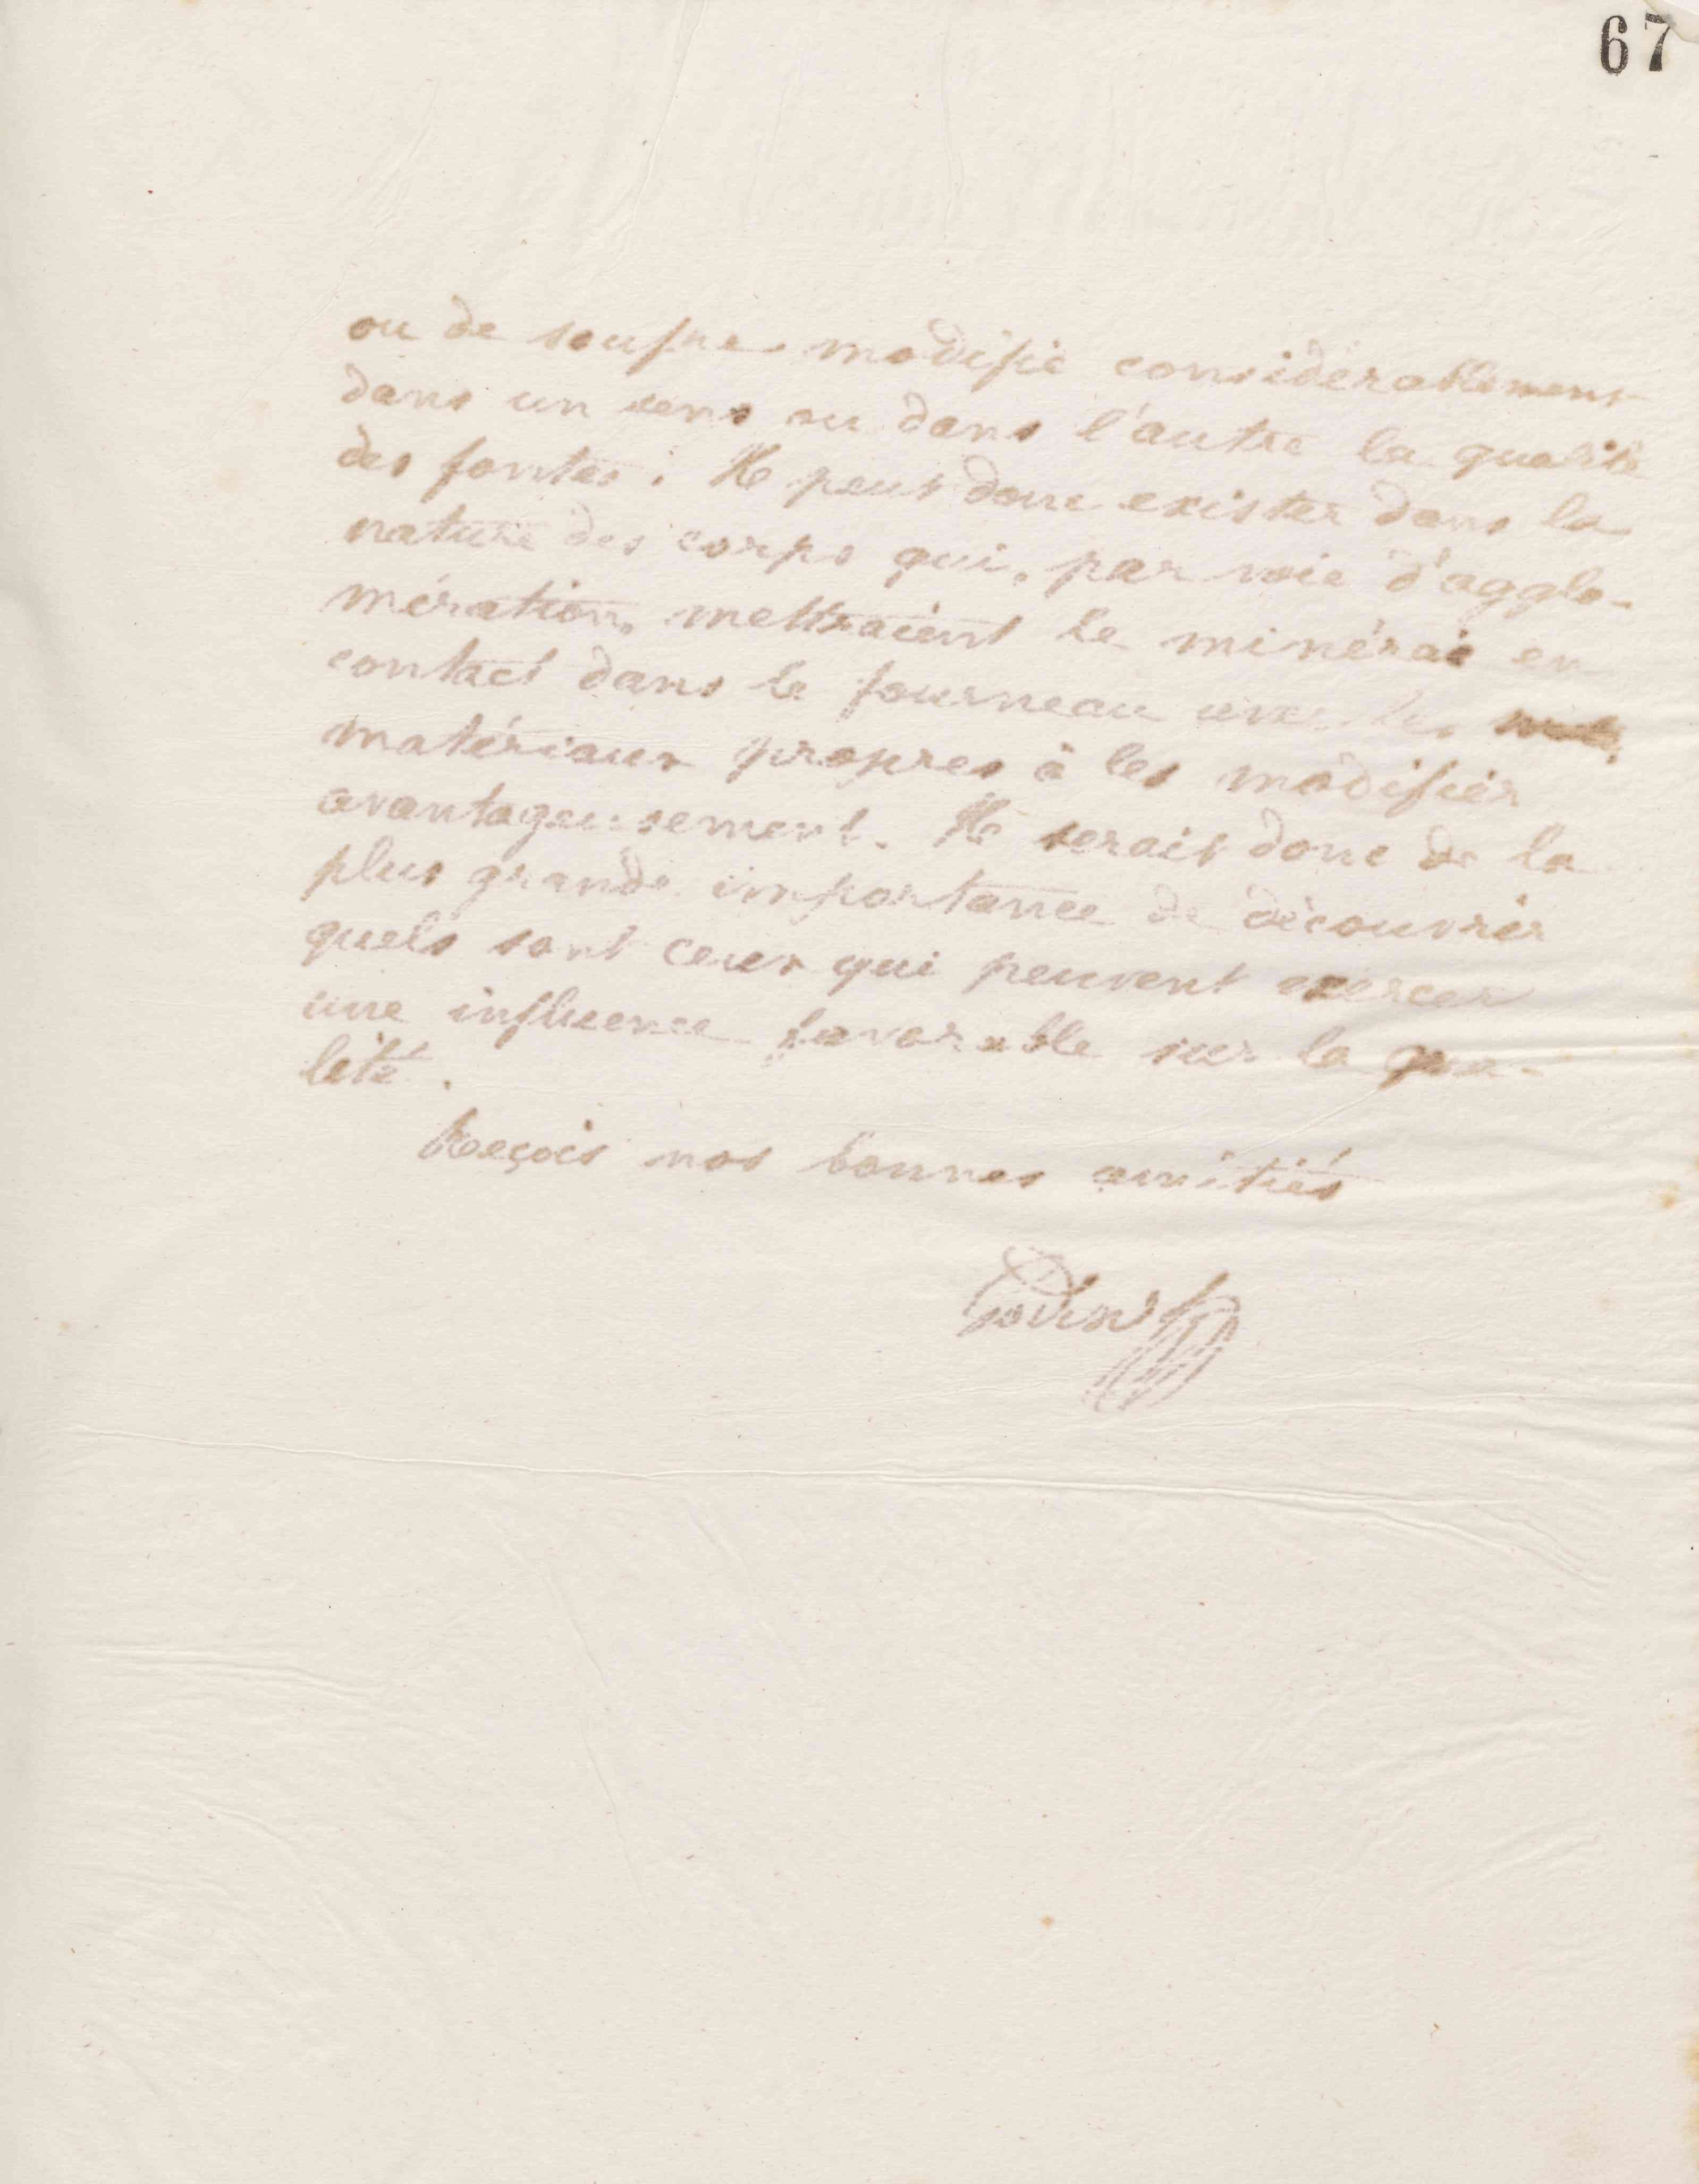 67
ou de soufre modifie considérablement
dans un sens ou dans l'autre la qualité
des fontes. Il peut donc exister dans la
nature des corps qui, par voie d'agglo-
mération, mettraient le minérai en
contact dans le fourneau avec les
matériaux propres à les modifier
avantageusement. Il serait donc de la
plus grande importance de découvrir
quels sont ceux qui peuvent exercer
une influence favorable sur la qua-
lité.
Reçois nos bonnes amitiés
Godin